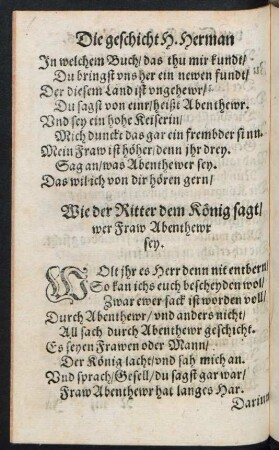 Die geschicht H. Herman
In welchem Buch/ das thu mir kundt/
Du bringst vns her ein newen fundt/
Der diesem Land ist vngehewr/
Du sagst von einr/ heißt Abenthewr.
Vnd sey ein hohe Keiserin/
Mich dunckt das gar ein frembder sinn.
Mein Fraw ist höher/ denn jhr drey.
Sag an/ was Abenthewer sey.
Das wil ich von dir hören gern/
Wie der Ritter dem König sagt/
wer Fraw Abenthewr
sey.
WOlt jhr es Herr denn nit entbern/
So kan ichs euch bescheyden wol/
Zwar ewer sack ist worden voll/
Durch Abenthewr/ vnd anders nicht/
All sach durch Abenthewr geschicht.
Es seyen Frawen oder Mann/
Der König lacht/ vnd sah mich an.
Vnd sprach/ Gesell/ du sagst gar war/
Fraw Abenthewr hat langes Har.
Darinn